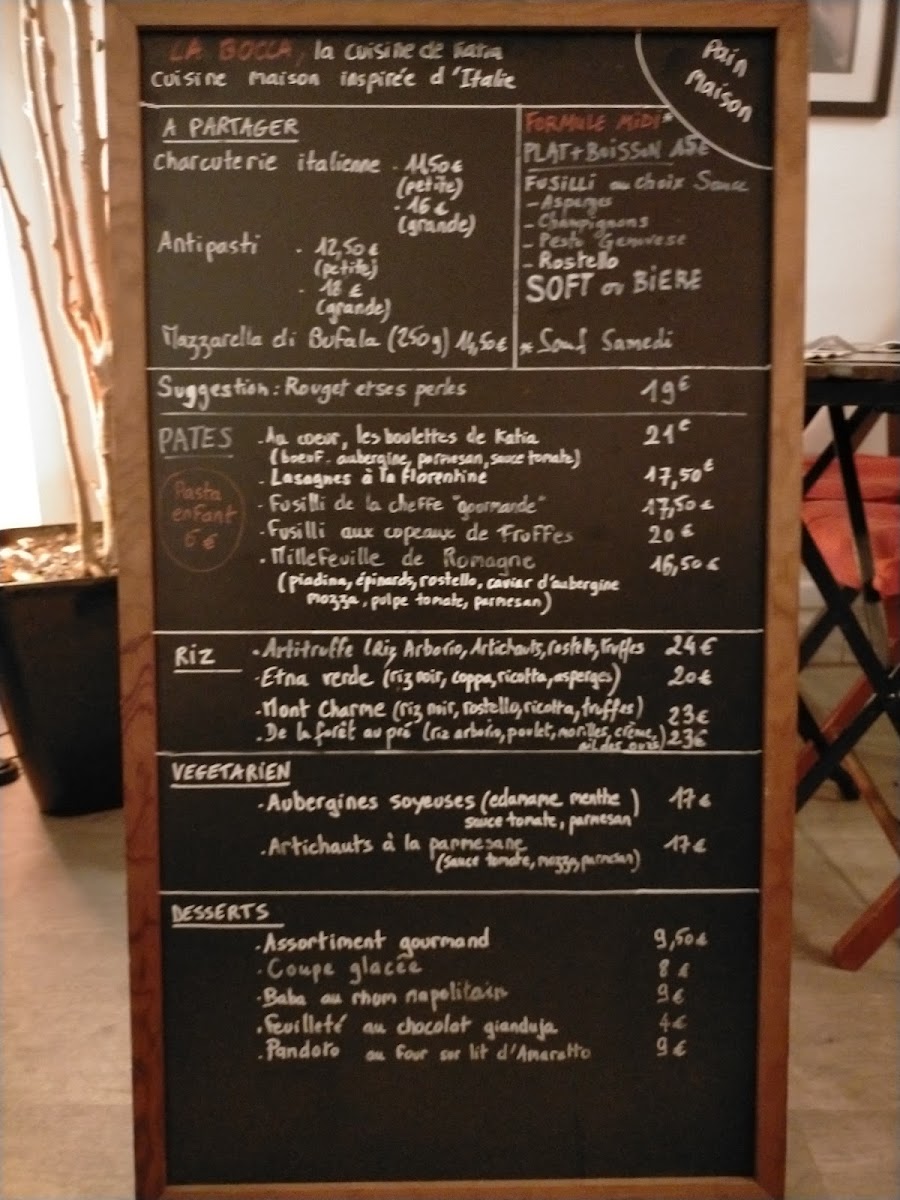 LA BOCCA, la cuisine de Katia
Cuisine maison inspirée d'Italie
Pain
Maison
A PARTAGER
Charcuterie italienne · 11,50€
(petite)
· 16 €
(grande)
Antipasti · 12,50€
(petite)
· 18 €
(grande)
Mazzarella di Bufala (250g) 14,50€
FORMULE MiDi*
PLAT+BOISSON 15€
FUSILLI au choix Sauce
- Asperges
- Champignons
- Pesto Genovese
- Rostello
SOFT ou BiERE
* Sauf Samedi
Suggestion: Rouget et ses perles 19€
PATES
Pasta
enfant
6 €
· Au coeur, les boulettes de Katia 21€
(boeuf. aubergine, parmesan, sauce tomate)
· Lasagnes à la florentine 17,50€
· Fusilli de la cheffe "gourmande" 17,50€
· Fusilli aux copeaux de Truffes 20€
· Millefeuille de Romagne 16,50€
(piadina, épinards, rostello, caviar d'aubergine
mozza, pulpe tomate, parmesan)
RIZ
· Artitruffe (Riz Arborio, Artichauts, rostello, truffes 24€
· Etna verde (riz noir, coppa, ricotta, asperges) 20€
· Mont Charme (riz noir, rostello, ricotta, truffes) 23€
· De la forêt au pré (riz arborio, poulet, morilles, crème, 23€
ail des ours)
VEGETARIEN
· Aubergines soyeuses (edamame menthe ) 17€
sauce tomate, parmesan
· Artichauts à la parmesane 17€
(sauce tomate, mozza, parmesan)
DESSERTS
· Assortiment gourmand 9,50€
· Coupe glacée 8 €
· Baba au rhum napolitain 9€
· Feuilleté au chocolat gianduja 4€
· Pandoro au four sur lit d'Amaretto 9€